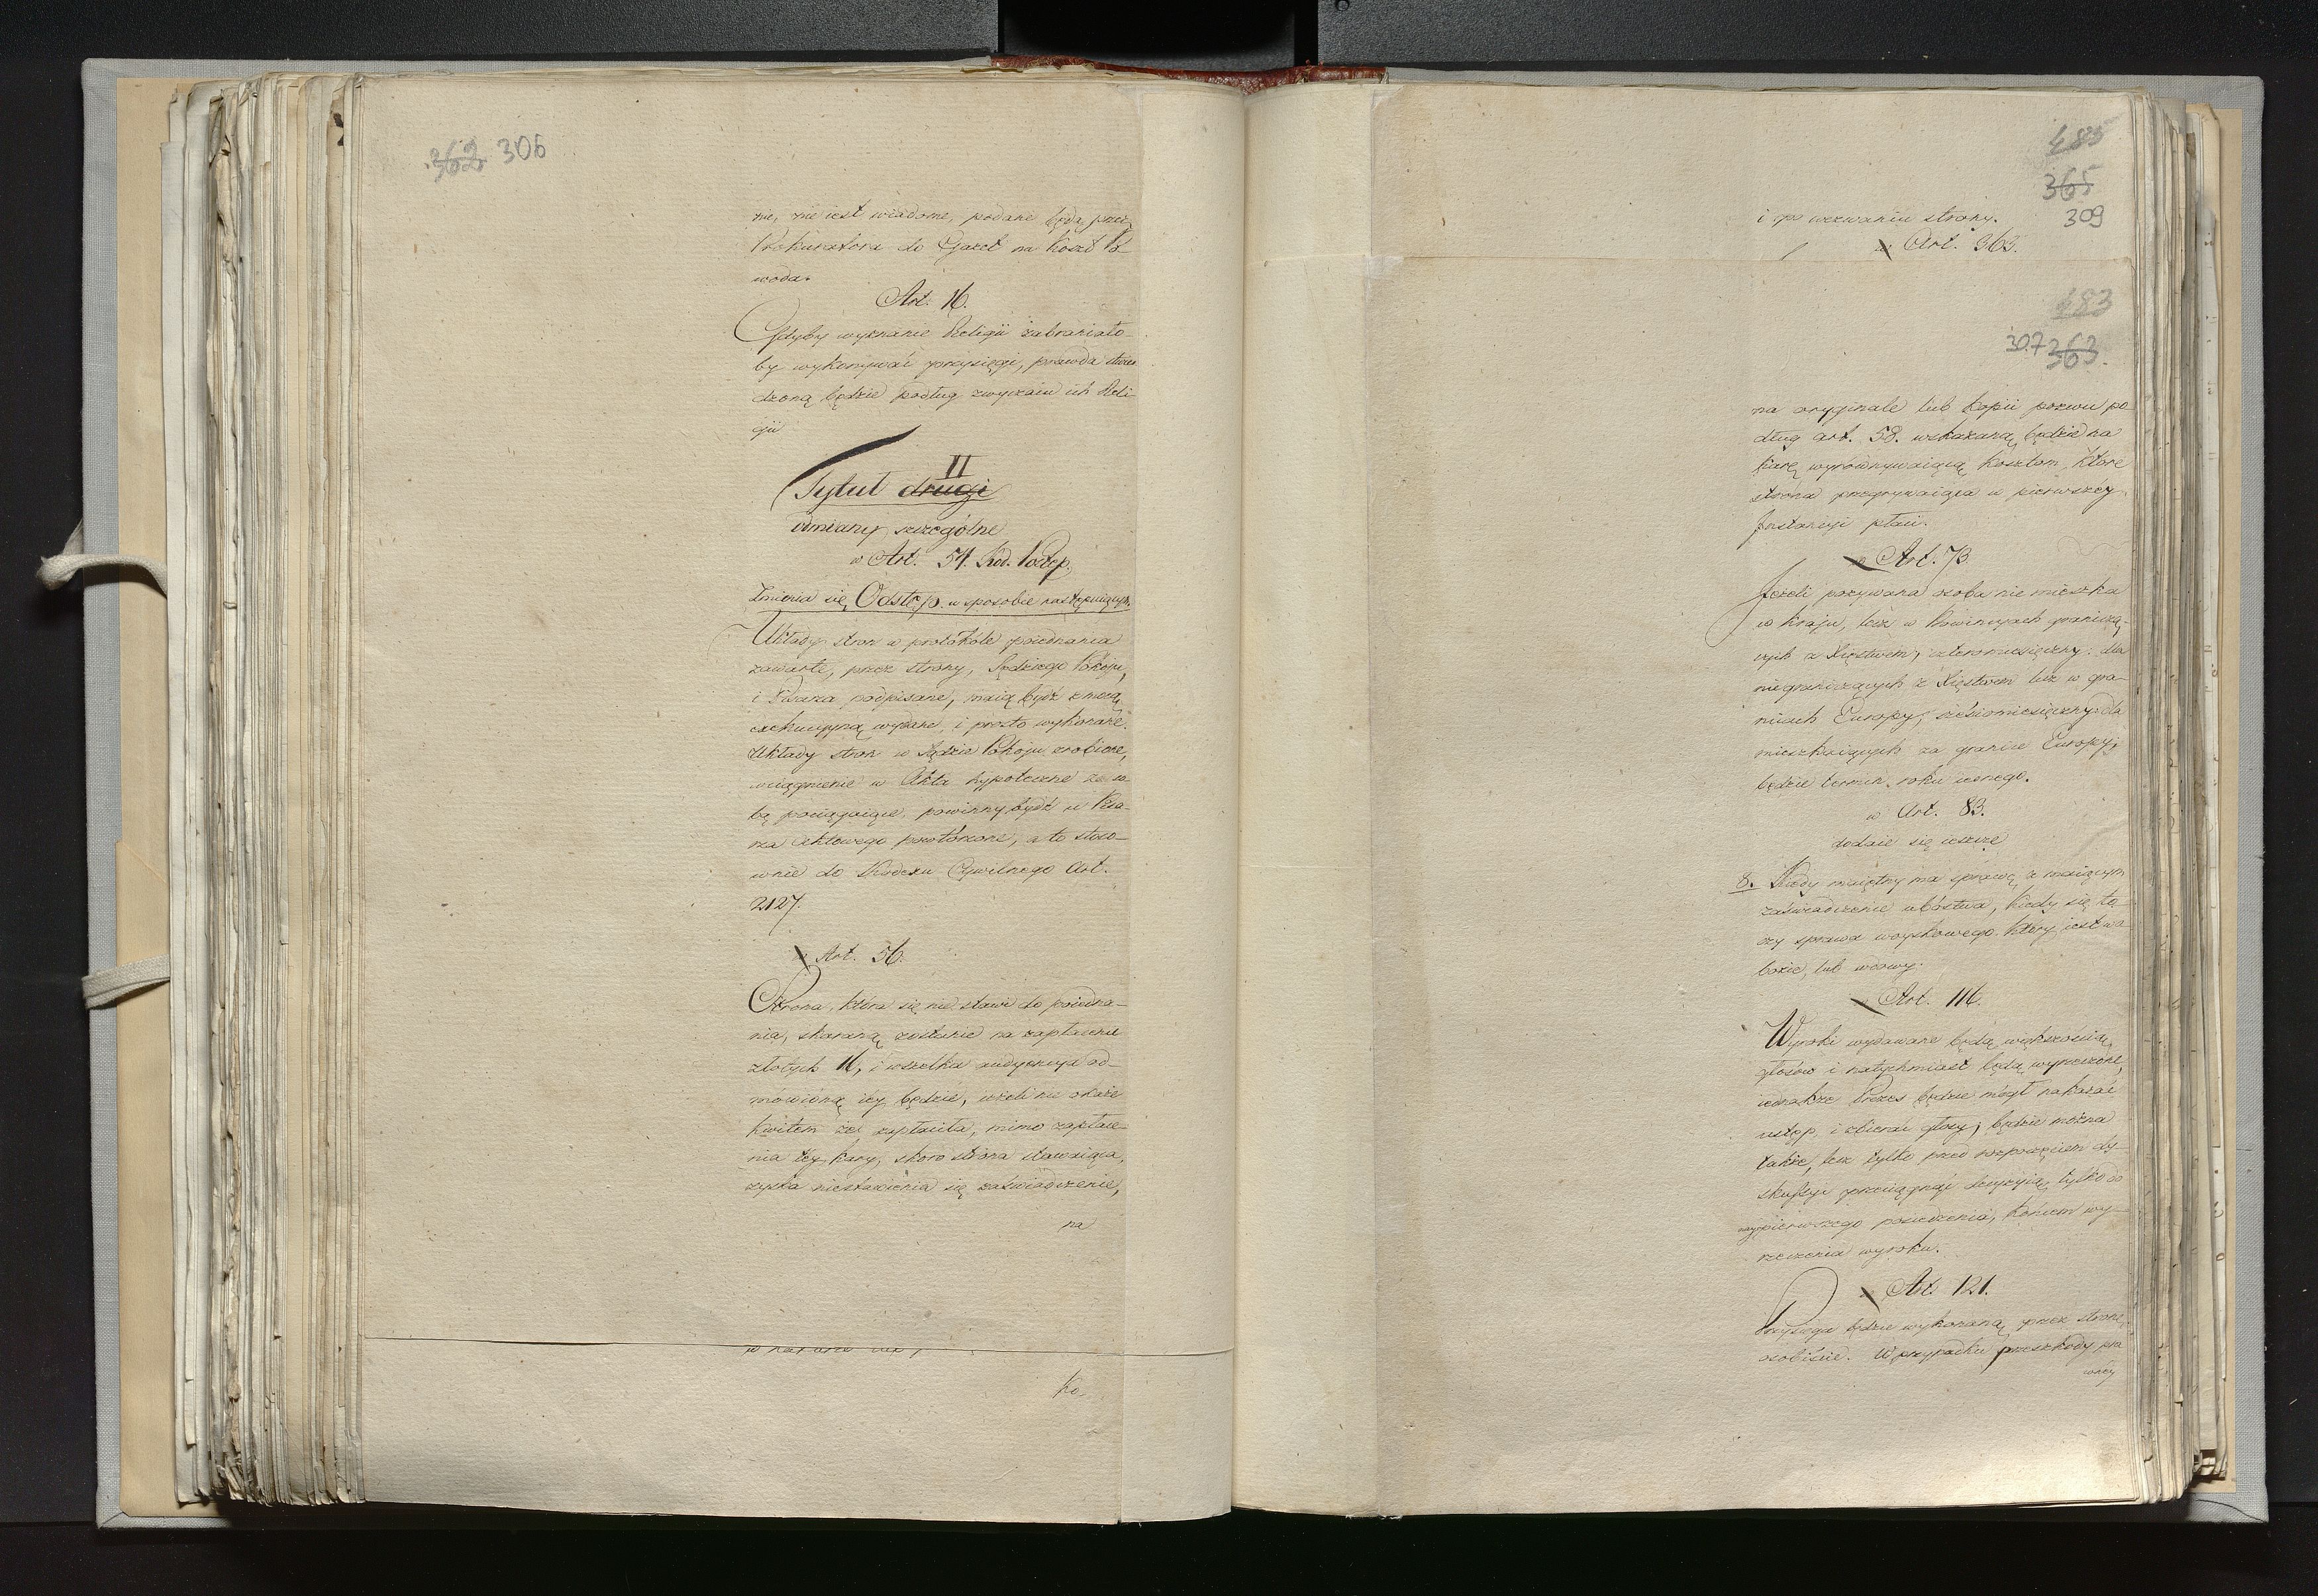 362 306
nie, nie iest wiadome, podane będą przez
Prokuratora do Gazet na koszt Po-
woda.
Art. 16.
Gdyby wyznanie Religii zabraniało-
by wykonywać przysięgi, prawda stwier
dzoną będzie podług zwyczaiu ich Reli-
gii
Tytuł drugi II
Odmiany szczególne
w Art. 54. Kod. Postęp.
Zmienia się Odstęp. w sposobie następuiącym.
Układy stron w protokole poiednania
zawarte, przez strony, Sędziego Pokoju,
i Pisarza podpisane, maią bydź z mocą
exekucyyną wydane, i prosto wykonane.
Układy stron w Sądzie Pokoju zrobione,
wciągnienie w Akta hypoteczne za so-
bą pociągaiące, powinny bydź u Pisa-
rza Aktowego powtórzone, a to stoso-
wnie do Kodexu Cywilnego Art.
2127.
w Art. 56.
Strona, która się nie stawi do poiedna-
nia, skaraną zostanie na zapłacenie
złotych 16, i wszelka audyencya od-
mówioną iey będzie, ieżeli nie okaże
kwitem że zapłaciła, mimo zapłace-
nia tey kary, skoro strona stawaiąca,
zyska niestawienia się zaświadczenie,
na
Ko-
485
365
309
i po wezwaniu strony.
w Art. 363.
483
307 363.
na oryginale lub kopii pozwu po-
dług art. 58. wskazaną będzie na
karę wyrównywaiącą kosztom, które
strona przegrywaiąca w pierwszey
Instancyi płaci.
w Art. 73.
Jeżeli pozywana osoba nie mieszka
w kraju, lecz w Prowincyach graniczą-
cych z Xięstwem, czteromiesięczny: dla
niegraniczących z Xięstwem lecz w gra-
nicach Europy, sześciomiesięczny: dla
mieszkaiących za granice Europy,
będzie termin roku iednego.
w Art. 83.
dodaie się ieszcze
8. Kiedy maiętny ma sprawę z maiącym
zaświadczenie ubóstwa, kiedy się to-
czy sprawa woyskowego, który iest w o-
bozie, lub wdowy.
w Art. 116.
Wyroki wydawane będą większością
głosów i natychmiast będą wyrzeczone,
iednakże Prezes będzie mógł nakazać
ustęp, i zbierać głosy; będzie można
także, lecz tylko przed rozpoczęciem dy-
skussyi przeciągnąć decyzyią tylko do
naypierwszego posiedzenia, końcem wy-
rzeczenia wyroku.
w Art. 121.
Przysięga będzie wykonaną przez stronę
osobiście. W przypadku przeszkody pra
wney